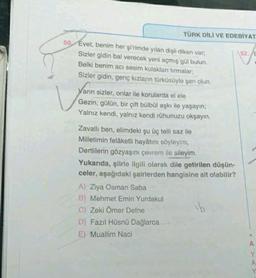 TÜRK DİLİ VE EDEBİYAT
50. Evet, benim her şi'rimde yılan dişli diken var;
Sizler gidin bal verecek yeni açmış gül bulun.
Belki benim acı sesim kulakları tırmalar;
Sizler gidin, genç kızların türküsüyle şen olun.
Varın sizler, onlar ile korularda el ele
Gezin, gülün, bir çift bülbül aşkı ile yaşayın;
Yalnız kendi, yalnız kendi rûhunuzu okşayın.
Zavallı ben, elimdeki şu üç telli saz ile
Milletimin felâketli hayatını söyleyim,
Dertlilerin gözyaşını çevrem ile sileyim.
Yukarıda, şiirle ilgili olarak dile getirilen düşün-
celer, aşağıdaki şairlerden hangisine ait olabilir?
A) Ziya Osman Saba
B) Mehmet Emin Yurdakul
C) Zeki Ömer Defne
D) Fazıl Hüsnü Dağlarca
E) Muallim Naci
52.
A